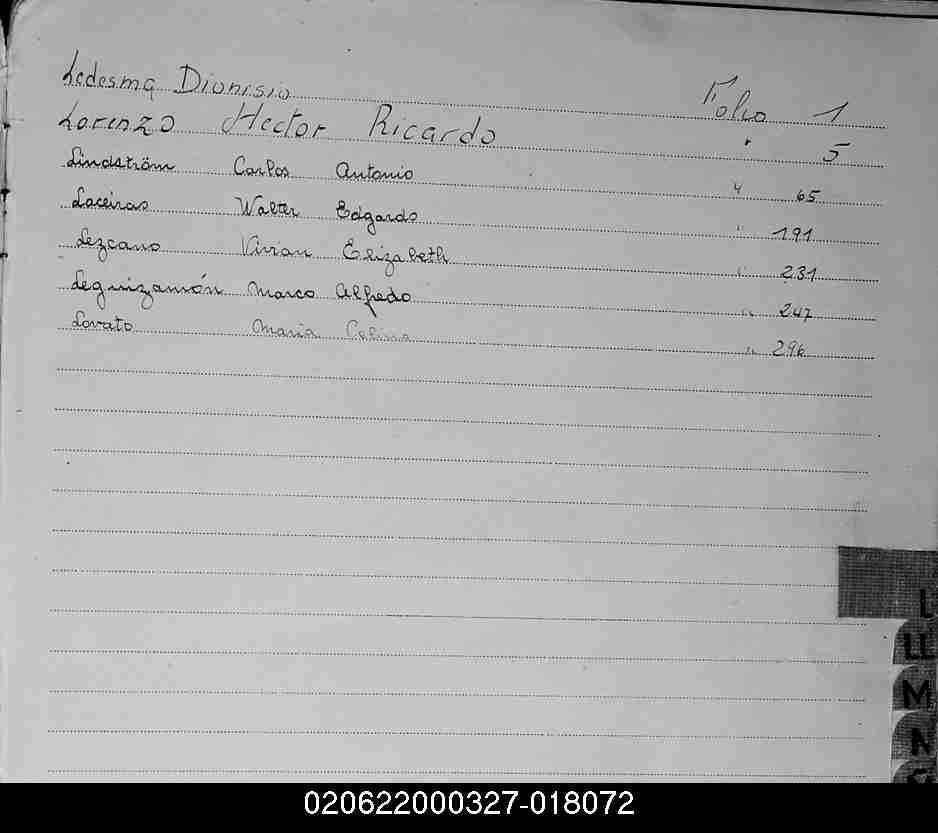 Ledesma Dionisio Folio 1
Lorenzo Hector Ricardo " 5
Lindström Carlos Antonio " 65
Laceiras Walter Edgardo " 191
Lezcano Vivian Elizabeth " 231
Leguizamón Marco Alfredo " 247
Lovato Maria Celina " 296
L
LL
M
N
020622000327-018072